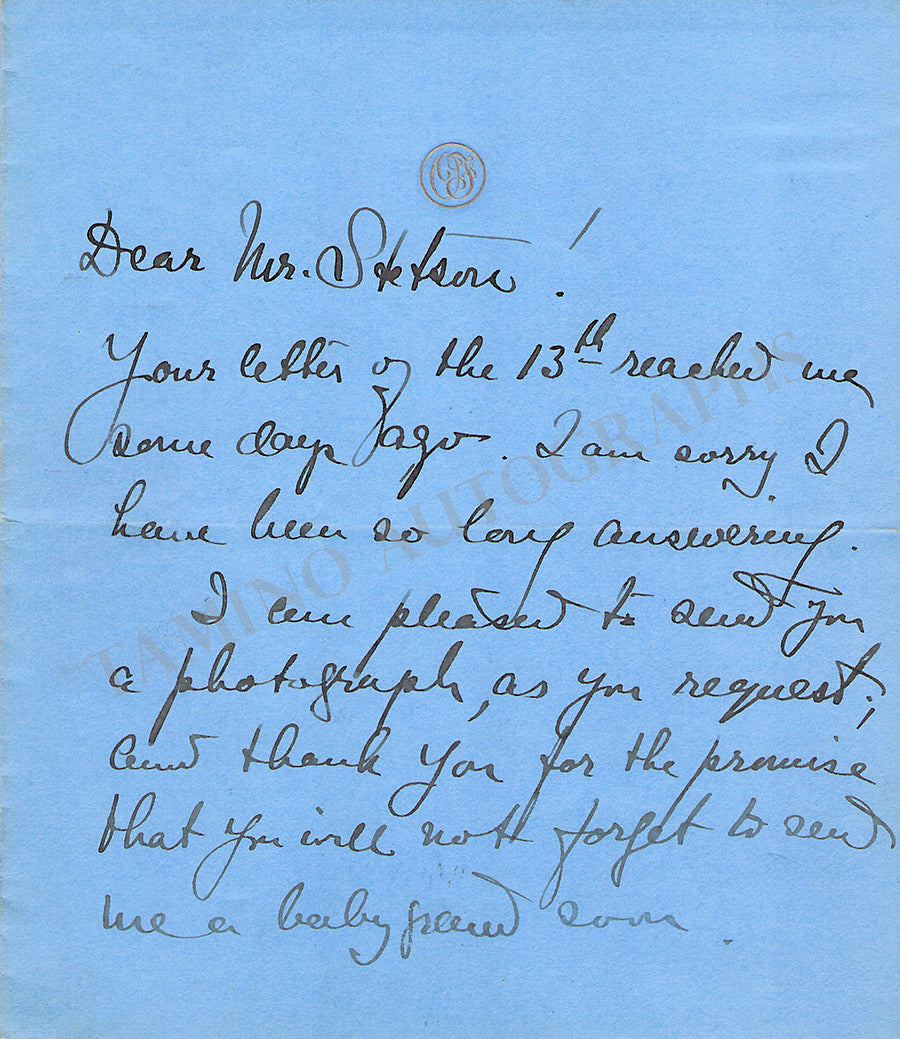 Dear Mr. Stetson!
Your letter of the 13th reached me
some days ago. I am sorry I
have been so long answering.
I am pleased to send you
a photograph, as you request;
and thank you for the promise
that you will not forget to send
me a baby grand soon.
TAMINO AUTOGRAPHS